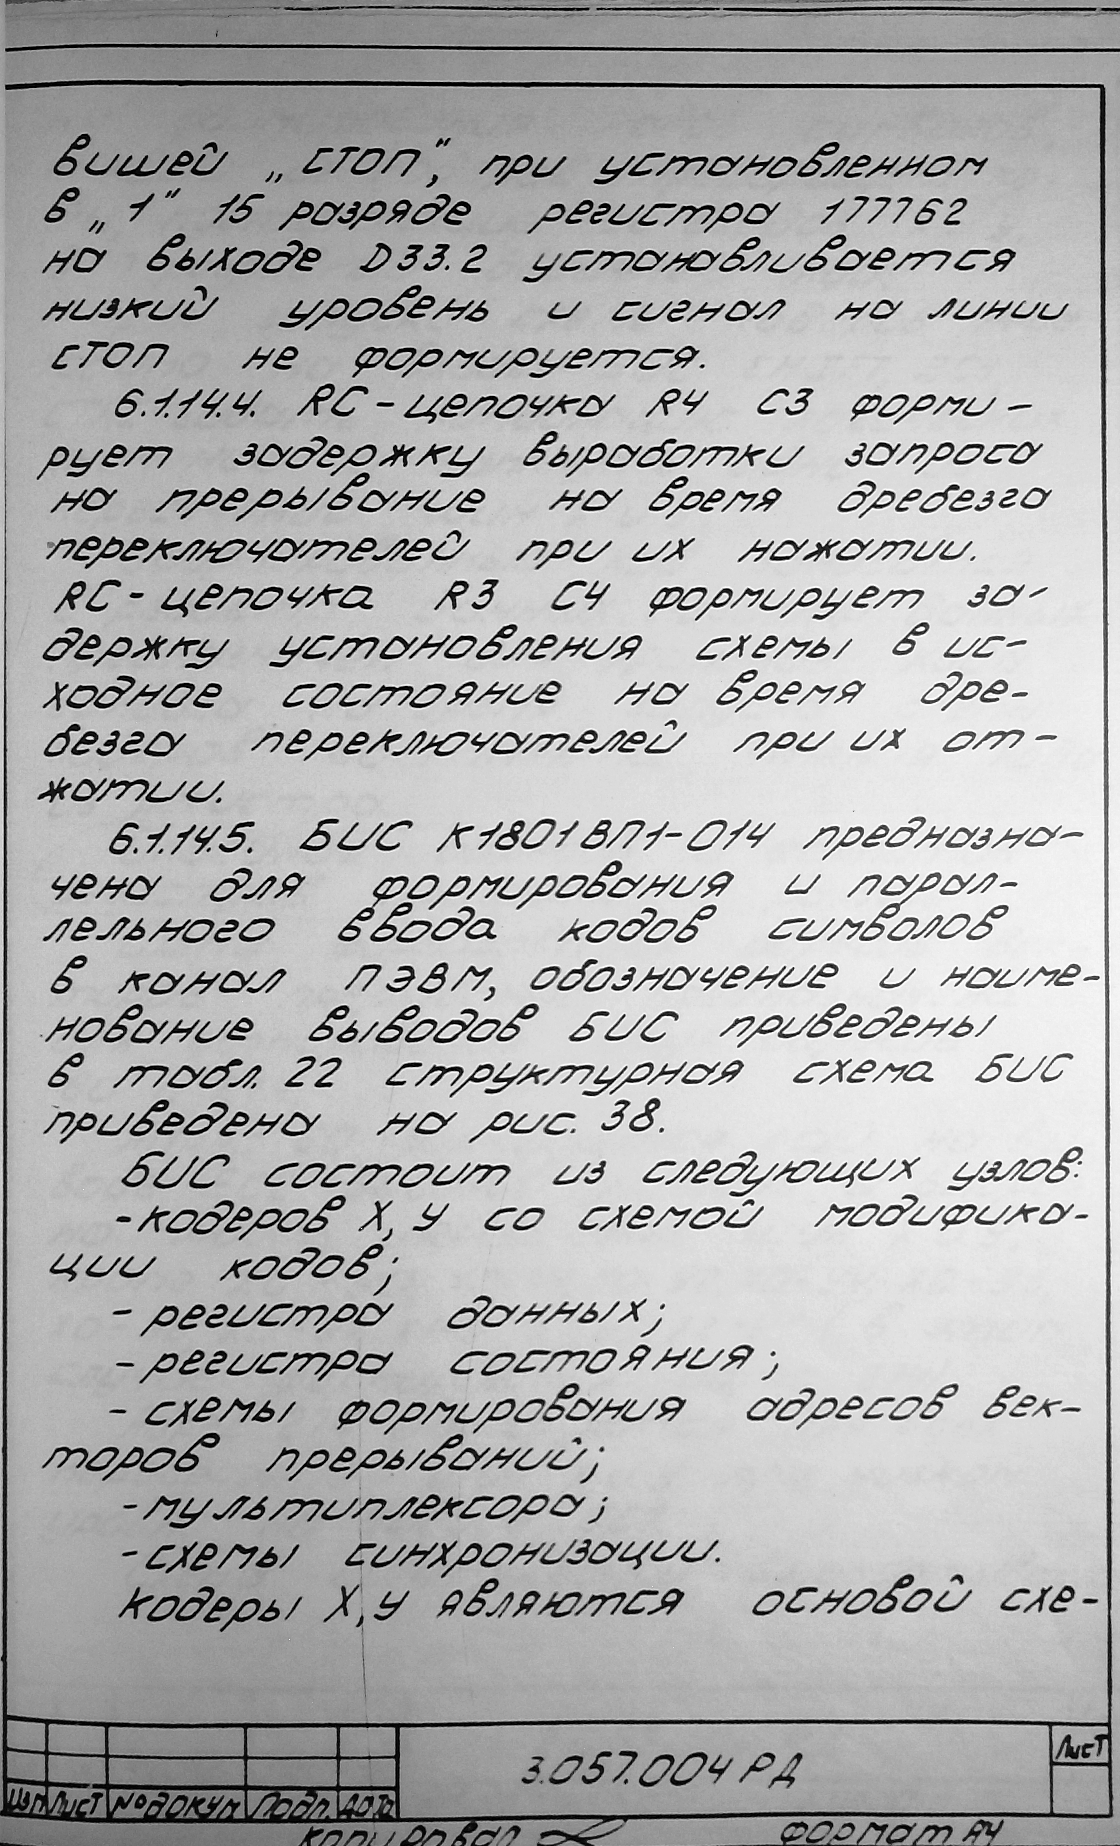 вишей „СТОП“, при установленном
в „1“ 15 разряде регистра 177762
на выходе D33.2 устанавливается
низкий уровень и сигнал на линии
СТОП не формируется.
6.1.14.4. RC-цепочка R4 C3 форми-
рует задержку выработки запроса
на прерывание на время дребезга
переключателей при их нажатии.
RC-цепочка R3 C4 формирует за-
держку установления схемы в ис-
ходное состояние на время дре-
безга переключателей при их от-
жатии.
6.1.14.5. БИС К1801ВП1-014 предназна-
чена для формирования и парал-
лельного ввода кодов символов
в канал ПЭВМ, обозначение и наиме-
нование выводов БИС приведены
в табл. 22 структурная схема БИС
приведена на рис. 38.
БИС состоит из следующих узлов:
-кодеров X, У со схемой модифика-
ции кодов;
- регистра данных;
- регистра состояния;
- схемы формирования адресов век-
торов прерываний;
-мультиплексора;
-схемы синхронизации.
Кодеры X, У являются основой схе-
3.057.004 РД
Лист
Изм Лист № докум Подп. Дата
Копировал Формат А4